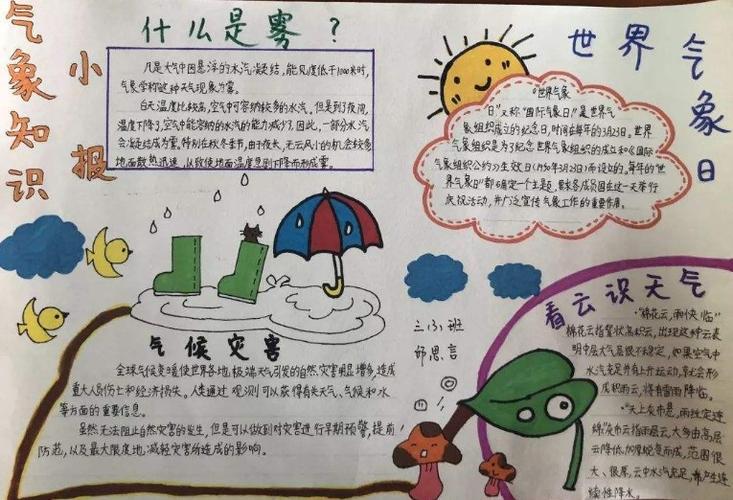 气象知识
小报
什么是雾？
凡是大气中因悬浮的水汽凝结，能见度低于1000米时，
气象学称这种天气现象为雾。
白天温度比较高，空气中可容纳较多的水汽。但是到了夜间，
温度下降了，空气中能容纳的水汽的能力减少了，因此，一部分水汽
会凝结成为雾。特别在秋冬季节，由于夜长，无云风小的机会较多
地面散热迅速，以致使地面温度急剧下降而形成雾。
世界气象日
"世界气象
日"又称"国际气象日"是世界气
象组织成立的纪念日，时间在每年的3月23日。世界
气象组织是为了纪念世界气象组织的成立和《国际
气象组织公约》生效日（1950年3月23日）而设立的。每年的"世
界气象日"都确定一个主题，要求各成员国在这一天举行
庆祝活动，并广泛宣传气象工作的重要作用。
气候灾害
全球气候变暖使世界各地极端天气引发的自然灾害明显增多，造成
重大人员伤亡和经济损失。人类通过观测可以获得有关天气、气候和水
等方面的重要信息。
虽然无法阻止自然灾害的发生，但是可以做到对灾害进行早期预警，提前
防范，以及最大限度地减轻灾害所造成的影响。
三（3）班
邱思言
看云识天气
"棉花云，雨快临"
棉花云指絮状高积云，出现这种云表
明中层大气层很不稳定，如果空气中
水汽充足并有上升运动，就会形
成积雨云，将有雷雨降临。
"天上灰布悬，雨丝定连
绵"灰布云指雨层云，大多由高层
云降低加厚蜕变而成，范围很
大、很厚，云中水汽充足，常产生连
续性降水。